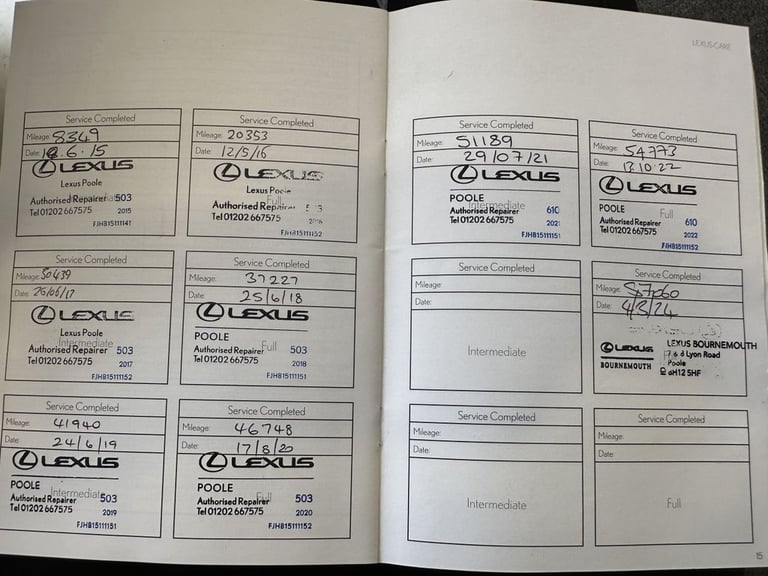 LEXUS CARE
Service Completed
Mileage: 8349
Date: 18.6.15
LEXUS
Lexus Poole
Authorised Repairer 503
Tel 01202 667575 2015
FJHB15111141
Service Completed
Mileage: 20353
Date: 12/5/16
LEXUS
Lexus Poole
Full
Authorised Repairer
Tel 01202 667575 2016
FJHB15111152
Service Completed
Mileage: 30439
Date: 26/06/17
LEXUS
Lexus Poole
Intermediate
Authorised Repairer 503
Tel 01202 667575 2017
FJHB15111152
Service Completed
Mileage: 37227
Date: 25/6/18
LEXUS
POOLE
Full
Authorised Repairer 503
Tel 01202 667575 2018
FJHB15111151
Service Completed
Mileage: 41940
Date: 24/6/19
LEXUS
POOLE
Intermediate
Authorised Repairer 503
Tel 01202 667575 2019
FJHB15111151
Service Completed
Mileage: 46748
Date: 17/8/20
LEXUS
POOLE
Full
Authorised Repairer 503
Tel 01202 667575 2020
FJHB15111152
Service Completed
Mileage: 51189
Date: 29/07/21
LEXUS
POOLE
Intermediate
Authorised Repairer 610
Tel 01202 667575 2021
FJHB15111151
Service Completed
Mileage: 54773
Date: 13.10.22
LEXUS
POOLE
Full
Authorised Repairer 610
Tel 01202 667575 2022
FJHB15111152
Service Completed
Mileage:
Date:
Intermediate
Service Completed
Mileage:
Date: 4/3/24
LEXUS
BOURNEMOUTH
LEXUS BOURNEMOUTH
Lyon Road
Poole
BH12 5HF
Service Completed
Mileage:
Date:
Intermediate
Service Completed
Mileage:
Date:
Full
15